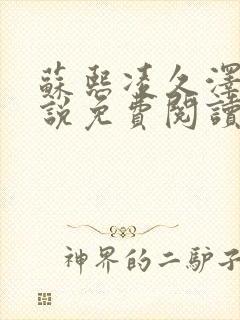 蘇熙凌久澤
說免費閱讀
神界的二驴子